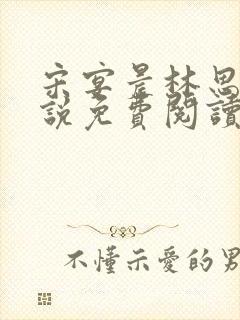 宋宴是林思
說免費閱讀
不懂示愛的男